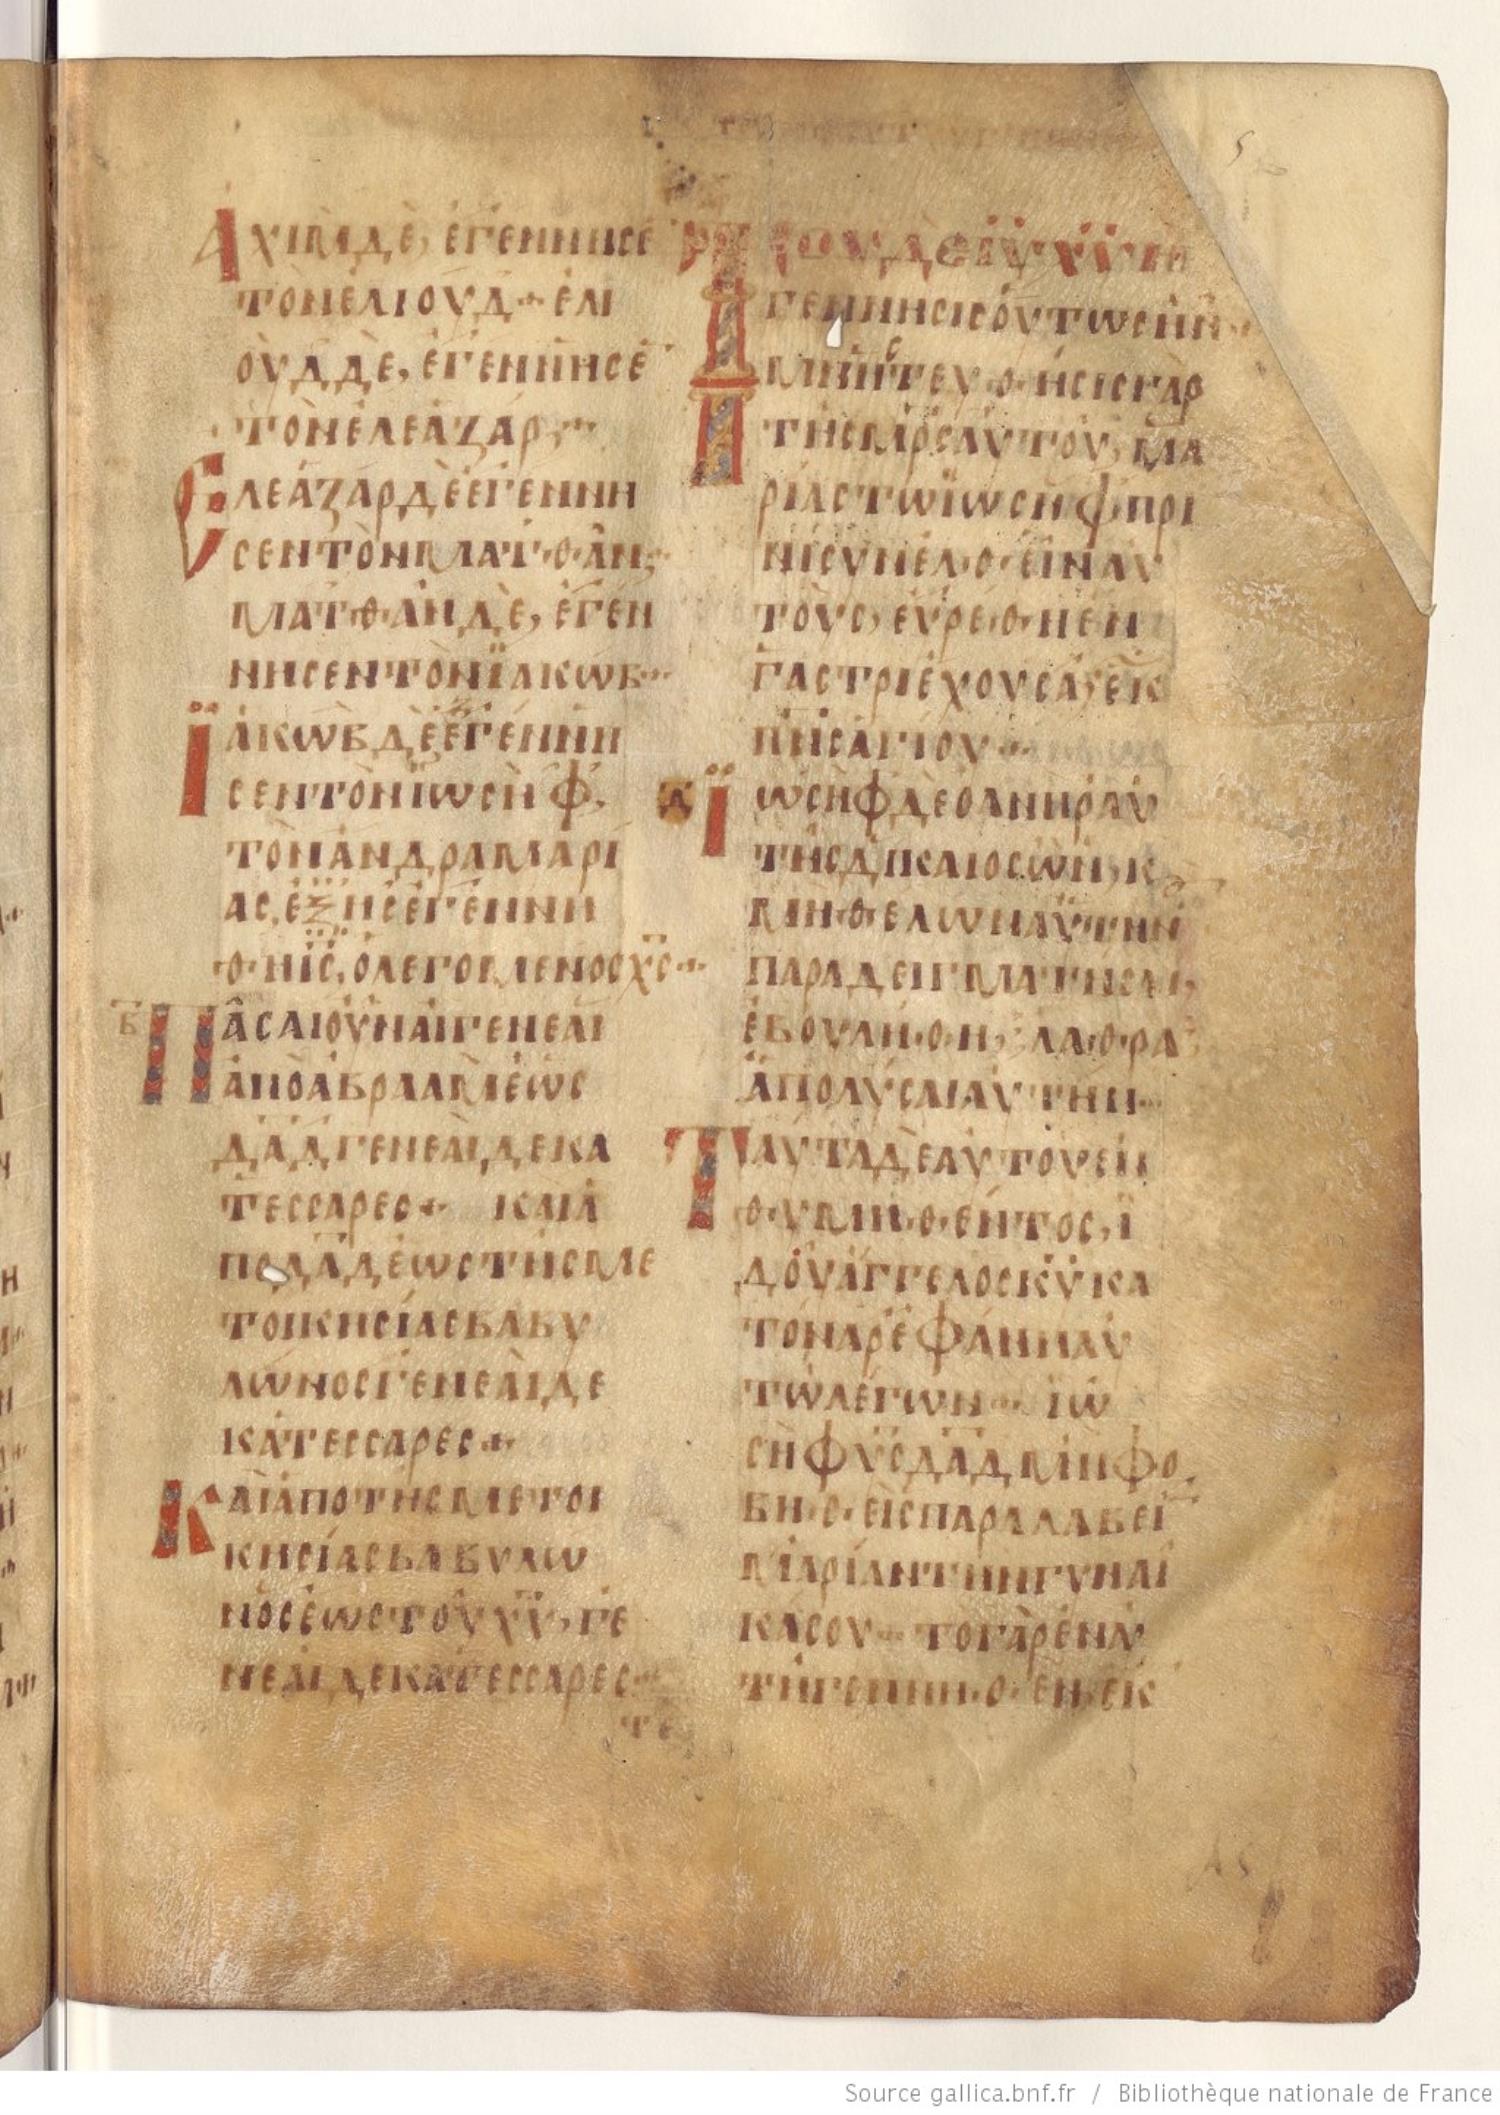 ΑΧΙΜΔῈ, ἘΓΈΝΝΗΣΕ
ΤΟΝΕΛΙΟΥΔ · ἘΛΙ
ΟῪΔΔῈ, ἘΓΈΝΝΗΣΕ
ΤῸΝἘΛΕΆΖΑΡ
ΕΛΕΆΖΑΡΔῈἘΓΕΝΝΗ
ΣΕΝΤῸΝΜΑΤΘΑΝ
ΜΑΤΘΑΝΔῈ, ἘΓΕΝ
ΝΗΣΕΝΤῸΝΪΑΚΩΒ
ΪΑΚΩΒΔῈἘΓΈΝΝΗ
ΣΕΝΤῸΝΪΩΣΗΦ,
ΤΟΝΑΝΔΡΑΜΑΡΙ
ΑΣ, ἘΞΗΣἘΓΕΝΝΗ
ΘΗΙΣ, ΟΛΕΓΟΜΕΝΟΣΧΣ
Β
ΠΑΣΑΙΟΥΝΑΙΓΕΝΕΑΙ
ἈΠΟΑΒΡΑΑΜἘΩΣ
ΔΑΔΓΕΝΕΑΙΔΕΚΑ
ΤΕΣΣΑΡΕΣ · ΚΑΙΑ
ΠΟΔΑΔἘΩΣΤΗΣΜΕ
ΤΟΙΚΗΣΊΑΣΒΑΒΥ
ΛΩΝΟΣΓΕΝΕΑΙΔΕ
ΚΑΤΕΣΣΑΡΕΣ
ΚΑΙΑΠΟΤΗΣΜΕΤΟΙ
ΚΗΣΊΑΣΒΑΒΥΛΩ
ΝΟΣἘΩΣΤΟΥΧΥ, ΓΕ
ΝΕΑΙΔΕΚΑΤΕΣΣΑΡΕΣ
ΤΟΥΔΕΙΥΧΥΗ
ΓΕΝΝΗΣΙΣΟΥΤΩΣΗΝ
ΜΝΗΣΤΕΥΘΗΣΙΣΓΑΡ
ΤΗΣΜΡΣΑΥΤΟΥ, ΜΑ
ΡΙΑΣΤΩΪΩΣΗΦΠΡΙ
ΝΗΣΥΝΕΛΘΕΙΝΑΥ
ΤΟΥΣ, ΕΥΡΕΘΗΕΝ
ΓΑΣΤΡΙΕΧΟΥΣΑ, ΕΚ
ΠΝΣΑΓΙΟΥ
Δ
ΪΩΣΗΦΔΕΟΑΝΗΡΑΥ
ΤΗΣΔΙΚΑΙΟΣΩΝ, Κ
ΜΗΘΕΛΩΝΑΥΤΗΝ
ΠΑΡΑΔΕΙΓΜΑΤΗΣΑΙ,
ΕΒΟΥΛΗΘΗ, ΛΑΘΡΑ
ΑΠΟΛΥΣΑΙΑΥΤΗΝ
ΤΑΥΤΑΔΕΑΥΤΟΥΕΝ
ΘΥΜΗΘΕΝΤΟΣ, Ϊ
ΔΟΥΑΓΓΕΛΟΣΚΥΚΑ
ΤΟΝΑΡΕΦΑΝΗΑΥ
ΤΩΛΕΓΩΝ · ΪΩ
ΣΗΦΥΣΔΑΔΜΗΦΟ
ΒΗΘΕΙΣΠΑΡΑΛΑΒΕΙ
ΜΑΡΙΑΝΤΗΝΓΥΝΑΙ
ΚΑΣΟΥ · ΤΟΓΑΡΕΝΑΥ
ΤΗΓΕΝΝΗΘΕΝ, ΕΚ
Source gallica.bnf.fr / Bibliothèque nationale de France